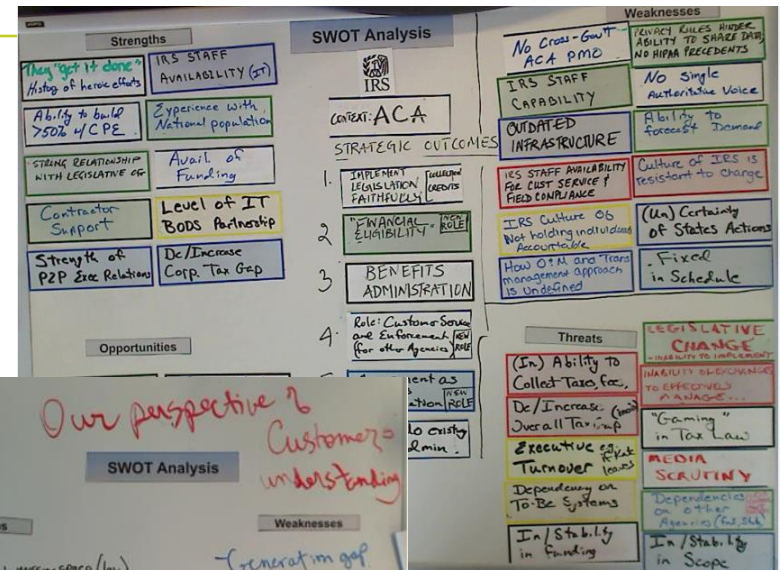 Strengths
They "get it done"
History of heroic efforts
IRS STAFF
AVAILABILITY (IT)
Ability to build
>50% w/CPE
Experience with
National population
STRONG RELATIONSHIP
WITH LEGISLATIVE
Avail. of
Funding
Contractor
Support
Level of IT
BODS Partnership
Strength of
P2P Exec Relations
Dc/Increase
Corp. Tax Gap
Opportunities
SWOT Analysis
IRS
CONTEXT: ACA
STRATEGIC OUTCOMES
1. IMPLEMENT
LEGISLATION
FAITHFULLY
CREDITS
2 "FINANCIAL
ELIGIBILITY"
NEW
ROLE
3 BENEFITS
ADMINISTRATION
4. Role: Customer Service
and Enforcement
for other Agencies
NEW
ROLE
as
NEW
ROLE
to existing
admin.
Weaknesses
No Cross-Gov't
ACA PMO
PRIVACY RULES HINDER
ABILITY TO SHARE DATA,
NO HIPAA PRECEDENTS
IRS STAFF
CAPABILITY
No Single
Authoritative Voice
OUTDATED
INFRASTRUCTURE
Ability to
forecast Demand
IRS STAFF AVAILABILITY
FOR CUST SERVICE &
FIELD COMPLIANCE
Culture of IRS is
resistant to change
IRS Culture of
Not holding individuals
Accountable
(Un) Certainty
of States Actions
How O&M and Trans
management approach
is Undefined
Fixed
in Schedule
Threats
(In) Ability to
Collect Taxes, fee,
LEGISLATIVE
CHANGE
- INABILITY TO IMPLEMENT
Dc/Increase
Overall Tax Gap
INABILITY OF EXCHANGES
TO EFFECTIVELY
MANAGE...
Executive
Turnover
leaves
"Gaming"
in Tax Law
Dependency on
To-Be Systems
MEDIA
SCRUTINY
In/Stability
in funding
Dependencies
on other
Agencies
In/Stability
in Scope
Our perspective of
Customer
understanding
SWOT Analysis
Weaknesses
Generation gap